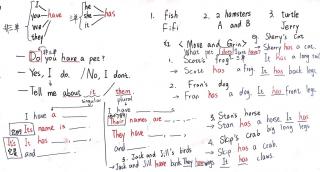 I
you
we
they
have
he
she
it
has
— Do you have a pet?
— Yes, I do. / No, I don't.
— Tell me about it
them
singular
plural
I have a
Its name is
It's
It has
and
Their names are
They have
and
1. fish
Fifi
2. 2 hamsters
A and B
3. Turtle
Jerry
<Move and Grin>
What pet I don't have
eg. Sherry's cat
Sherry has a cat.
It has a long tail
1. Scott's frog
Scott has a frog. It has back legs
2. Fran's dog
Fran has a dog. It has front legs
3. Stan's horse
Stan has a horse. It has long legs
4. Skip's crab
Skip has a crab.
It has claws.
Jack and Jill's birds
Jack and Jill have birds They have wings